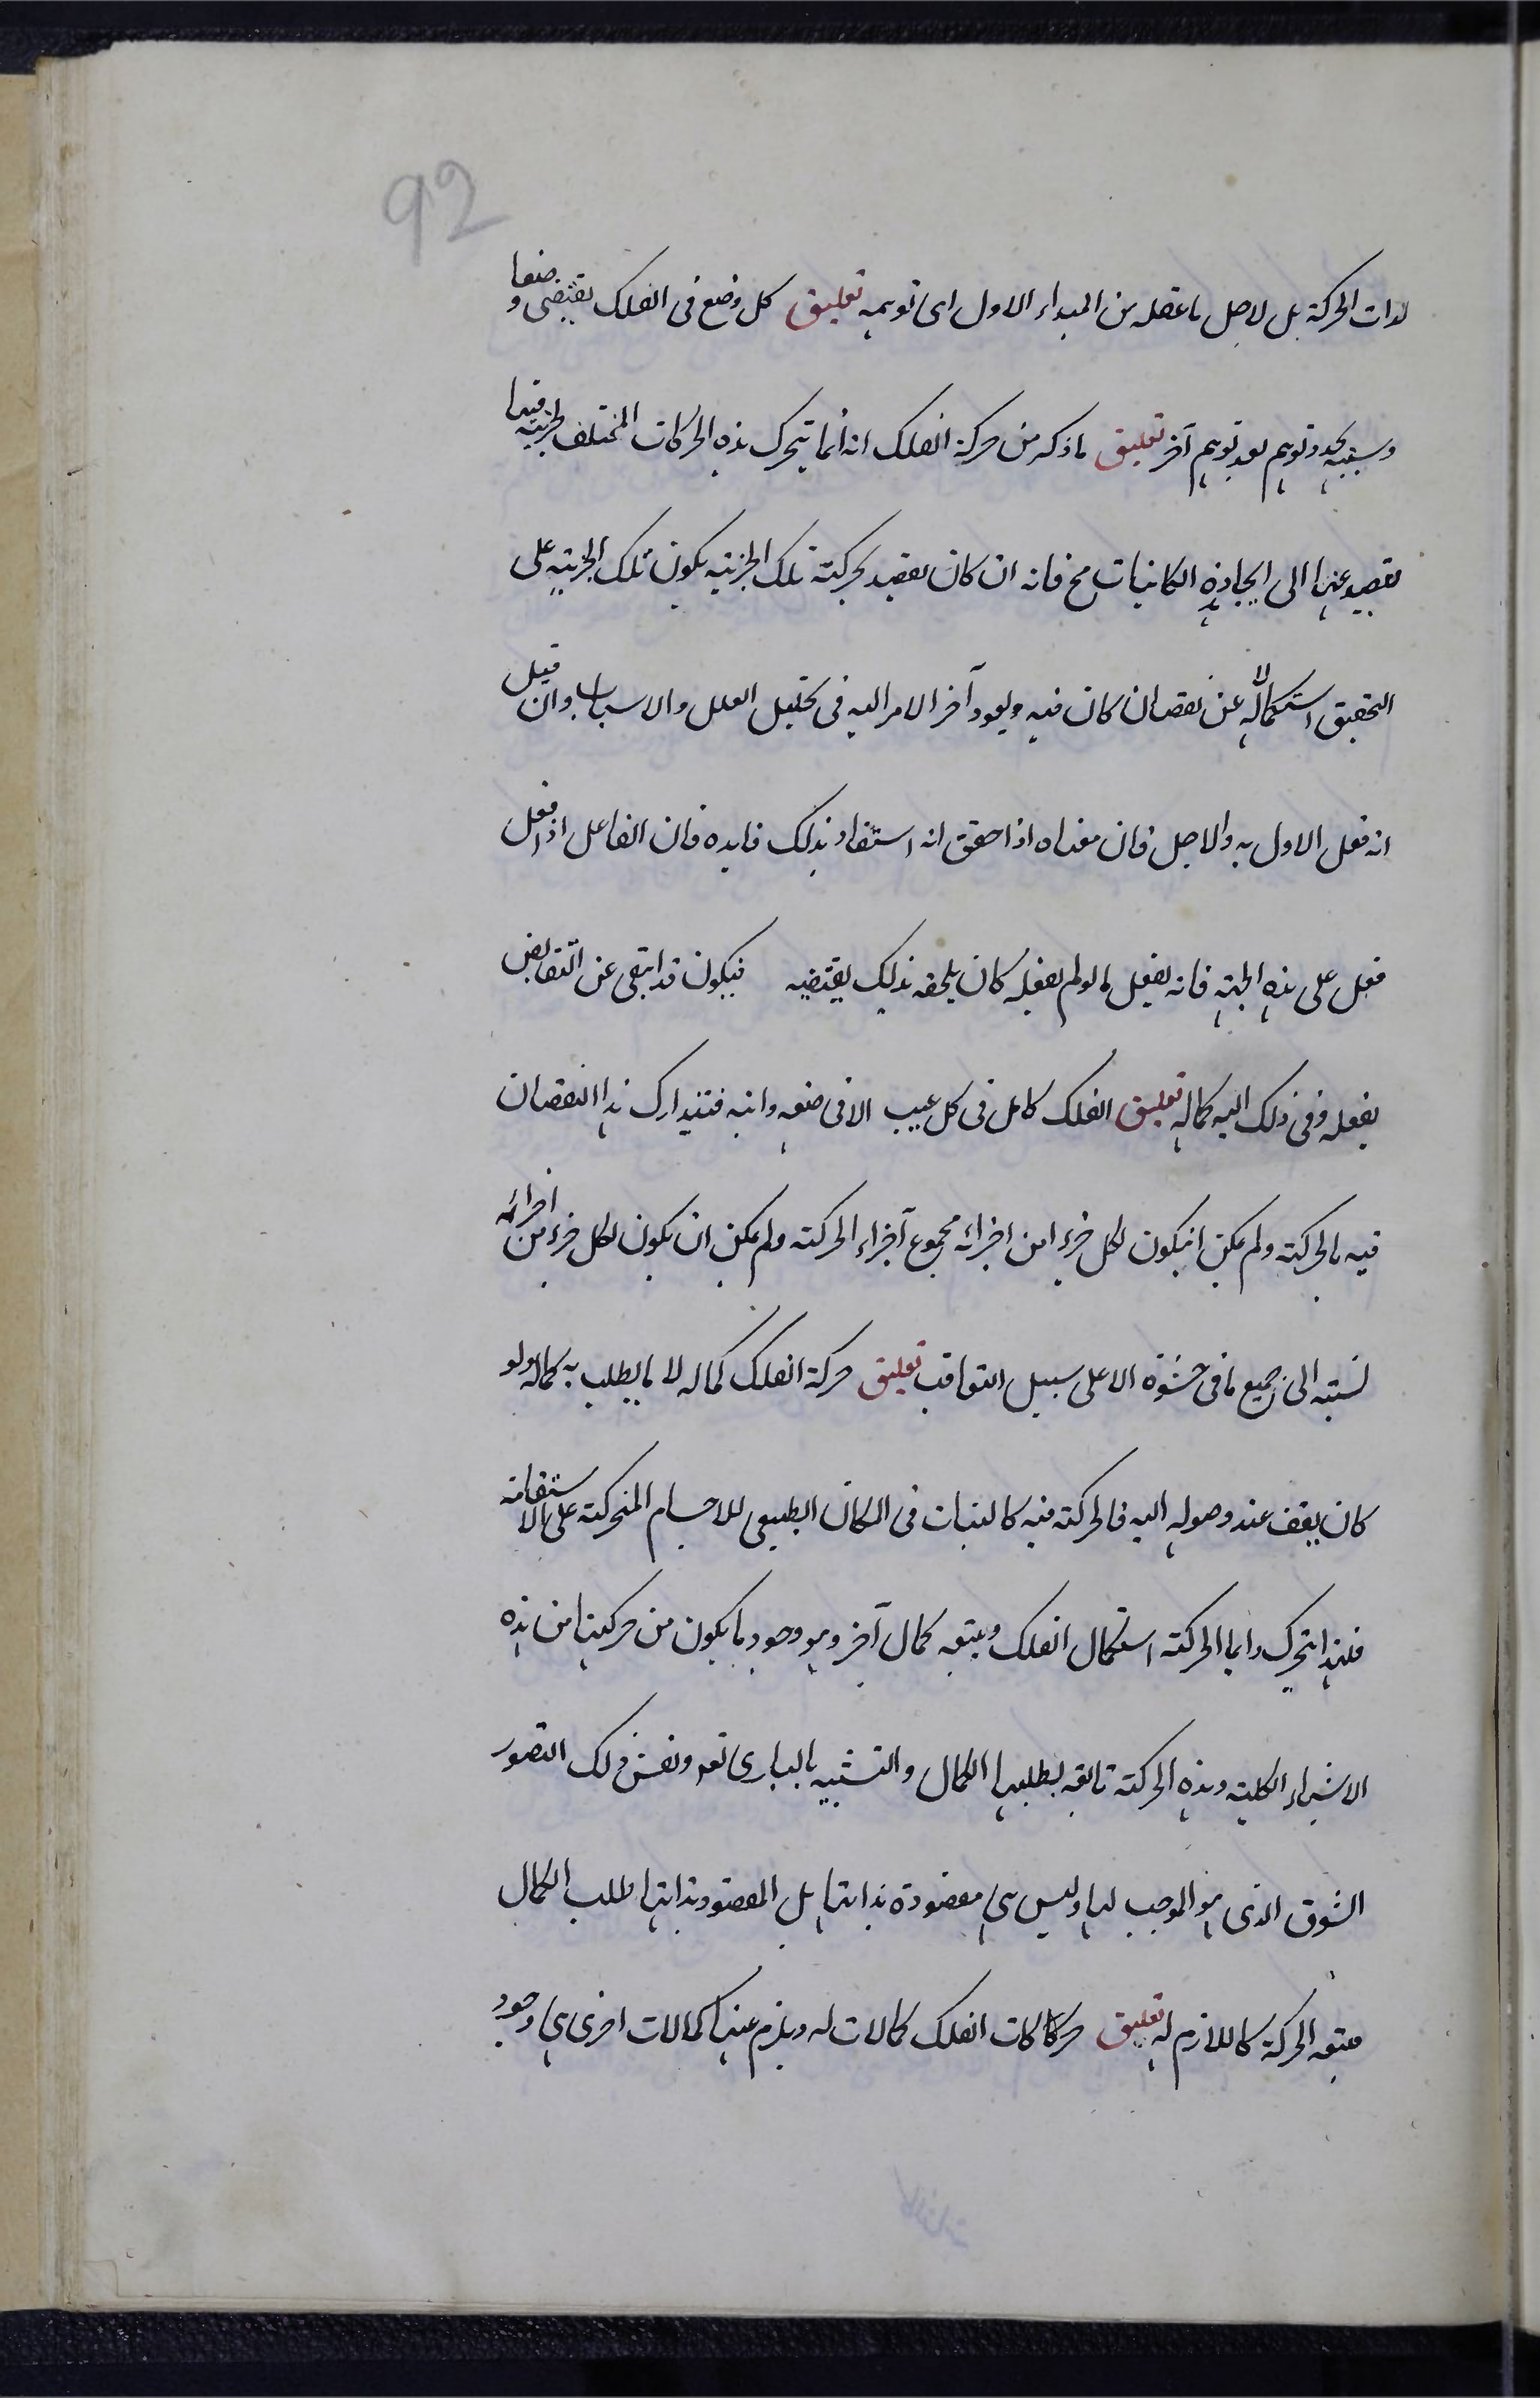 92
لذات الحركة بل لاجل ما عقله من المبداء الاول اى توهمه تعليق كل وضع فى الفلك يقتضى وضعا
وسببه تجدد توهم بعد توهم آخر تعليق ما ذكر من حركة الفلك انه انما يتحرك هذه الحركات المختلف لجزئيته قيدا
يقصد عنها الى ايجاد هذه الكائنات مح فانه ان كان يقصد بحركته تلك الجزئيه يكون تلك الجزئيه على
التحقيق استكمالاله عن نقصان كان فيه ويعود آخر الامر اليه فى تحليل العلل والاسباب وان قيل
انه فعل الاول به والاجل فان معناه اذا حقق انه استفاد بذلك فايده فان الفاعل اذا فعل
فعل على هذه الجهته فانه يفعل ما لو لم يفعله كان يلحقه بذلك يقتضيه فيكون قد ابتقى عن النقايض
بفعله وفى ذلك اليه كماله تعليق الفلك كامل فى كل عيب الا فى ضعه وانيه فتيدارك هذا النقصان
فيه بالحركته ولم يكن انيكون لكل جزء امن اجزائه مجموع آجزاء الحركته ولم يكن ان يكون لكل جزء من اجزائه
نسبته الى جميع ما فى حشوه الا على سبيل التعاقب تعليق حركة الفلك كماله لا ما يطلب به كماله ولو
كان يقف عند وصوله اليه فالحركته فيه كالثبات فى المكان الطبيعى للاجسام المتحركته على الاستقامة
فلهذا يتحرك دايما الحركته استكمال الفلك ويتبعه كمال آخر وهو وجود ما يكون من حركتها من هذه
الاشياء الكليته وهذه الحركته تابعه لطلبها الكمال والتشبيه بالبارى تعه ونفس ذلك التصور
الشوق الذى هو الموجب لها وليس هى مقصودة بذاتها بل المقصود بذاتها طلب الكمال
يتبعه الحركة كاللازم له تعليق حركات الفلك كمالات له ويلزم عنها كمالات اخرى هى وجود